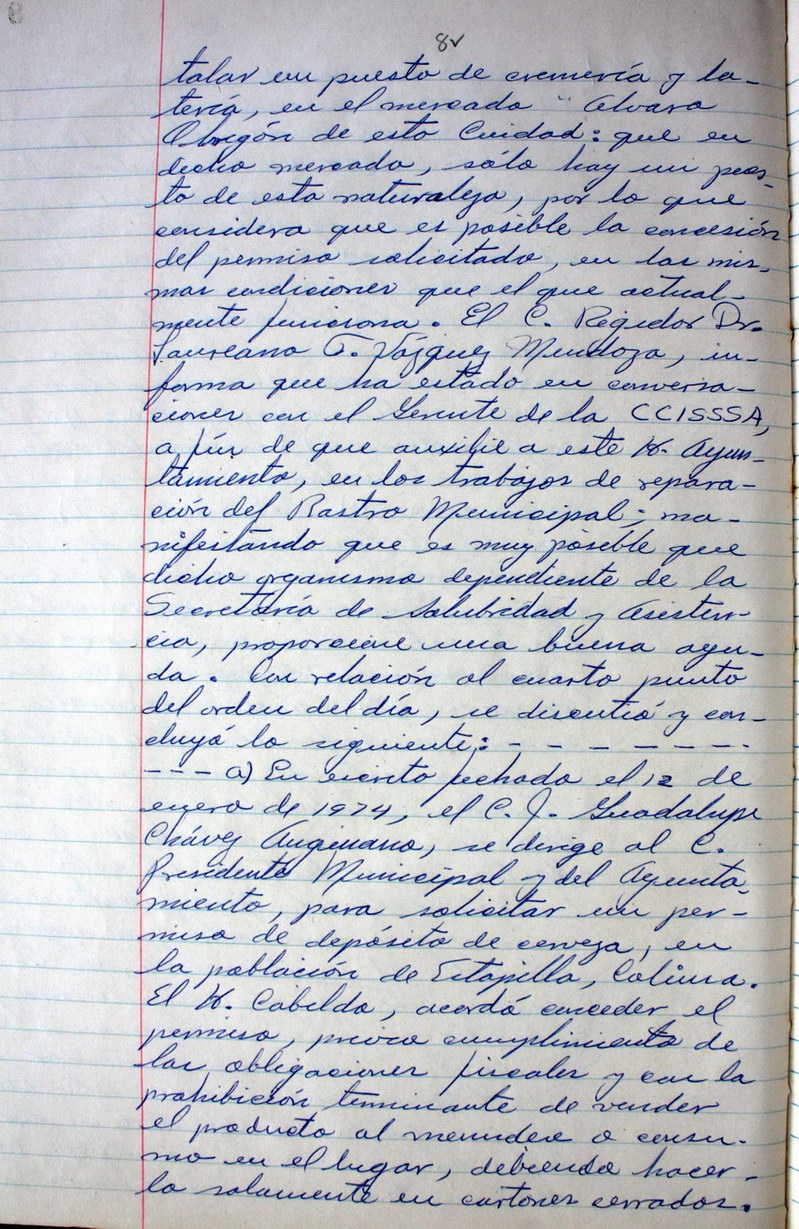 8v
talar un puesto de cremería y la-
tería, en el mercado "Alvaro
Obregón de esta Ciudad: que en
dicho mercado, sólo hay un pues-
to de esta naturaleza, por lo que
considera que es posible la concesión
del permiso solicitado, en las mis-
mas condiciones que el que actual-
mente funciona. El C. Regidor Dr.
Laureano T. Vázquez Mendoza, in-
forma que ha estado en conversa-
ciones con el Gerente de la CCISSSA,
a fin de que auxilie a este H. Ayun-
tamiento, en los trabajos de repara-
ción del Rastro Municipal; ma-
nifestando que es muy posible que
dicho organismo dependiente de la
Secretaría de Salubridad y Asisten-
cia, proporcione una buena ayu-
da. Con relación al cuarto punto
del orden del día, se discutió y con-
cluyó lo siguiente: - - - - - - -
- - - a) En escrito fechado el 12 de
enero de 1974, el C. J. Guadalupe
Chávez Anguiano, se dirige al C.
Presidente Municipal y del Ayunta-
miento, para solicitar un per-
miso de depósito de cerveza, en
la población de Estapilla, Colima.
El H. Cabildo, acordó conceder el
permiso, previo cumplimiento de
las obligaciones fiscales y con la
prohibición terminante de vender
el producto al menudeo o consu-
mo en el lugar, debiendo hacer-
lo solamente en cartones cerrados.